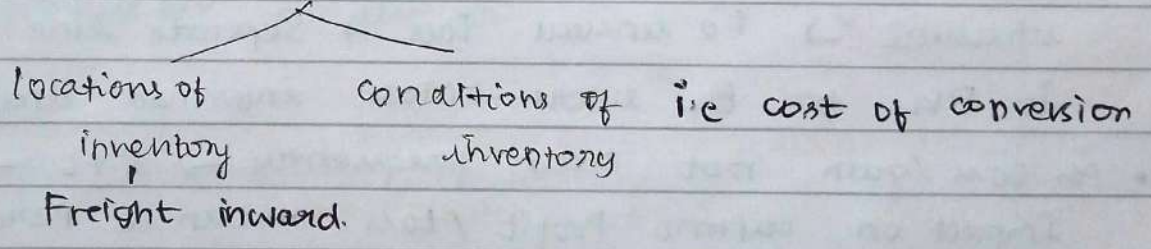 locations of conditions of i.e cost of conversion
inventory inventory
Freight inward.